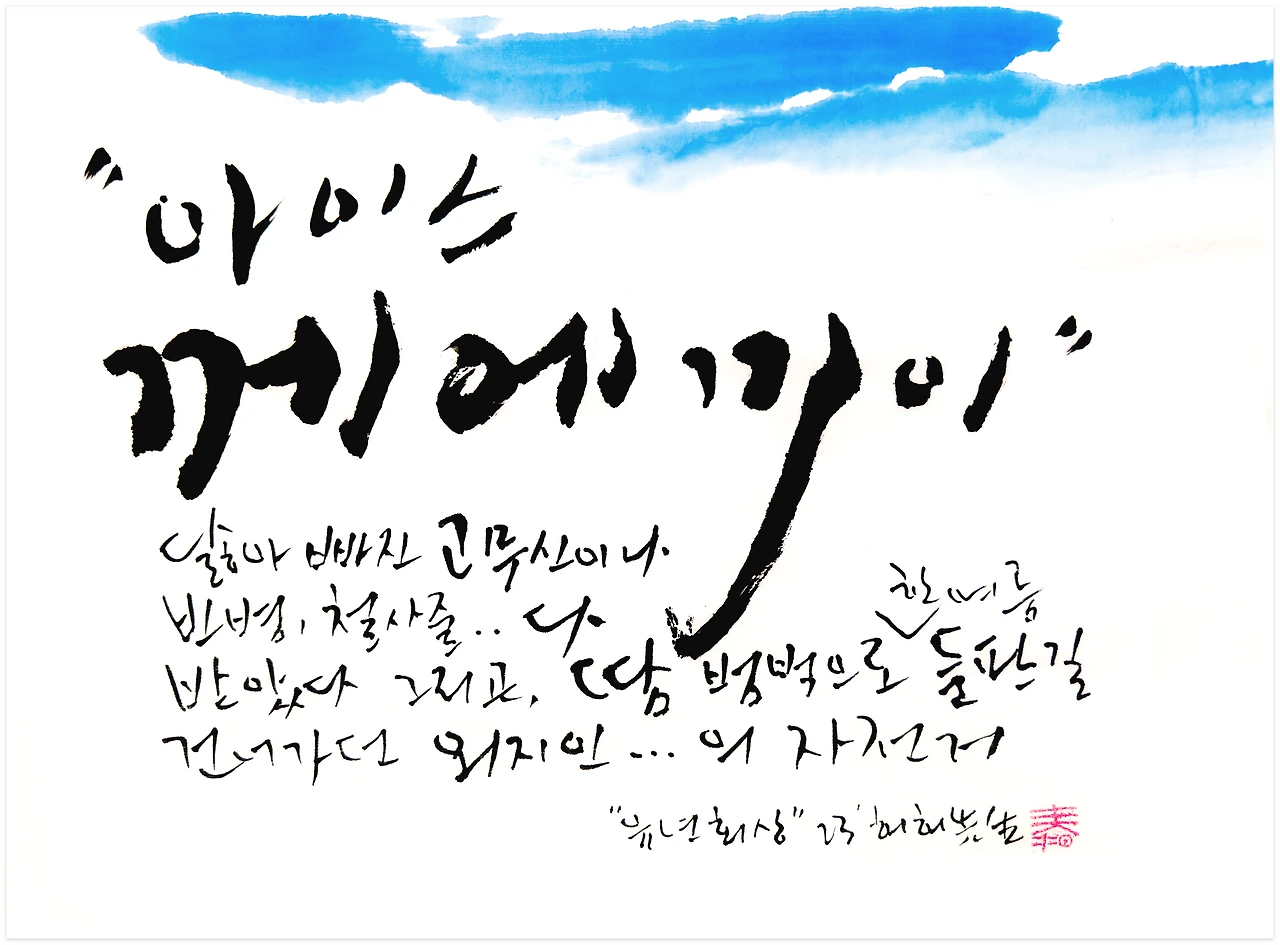 "아이스
께에끼이"
닳아 빠진 고무신이나.
빈병, 철사줄.. 다.
받았다 그리고, 땀 범벅으로 한여름 들판길
건너가던 외지인... 의 자전거
"유년회상" 23' 허허先生